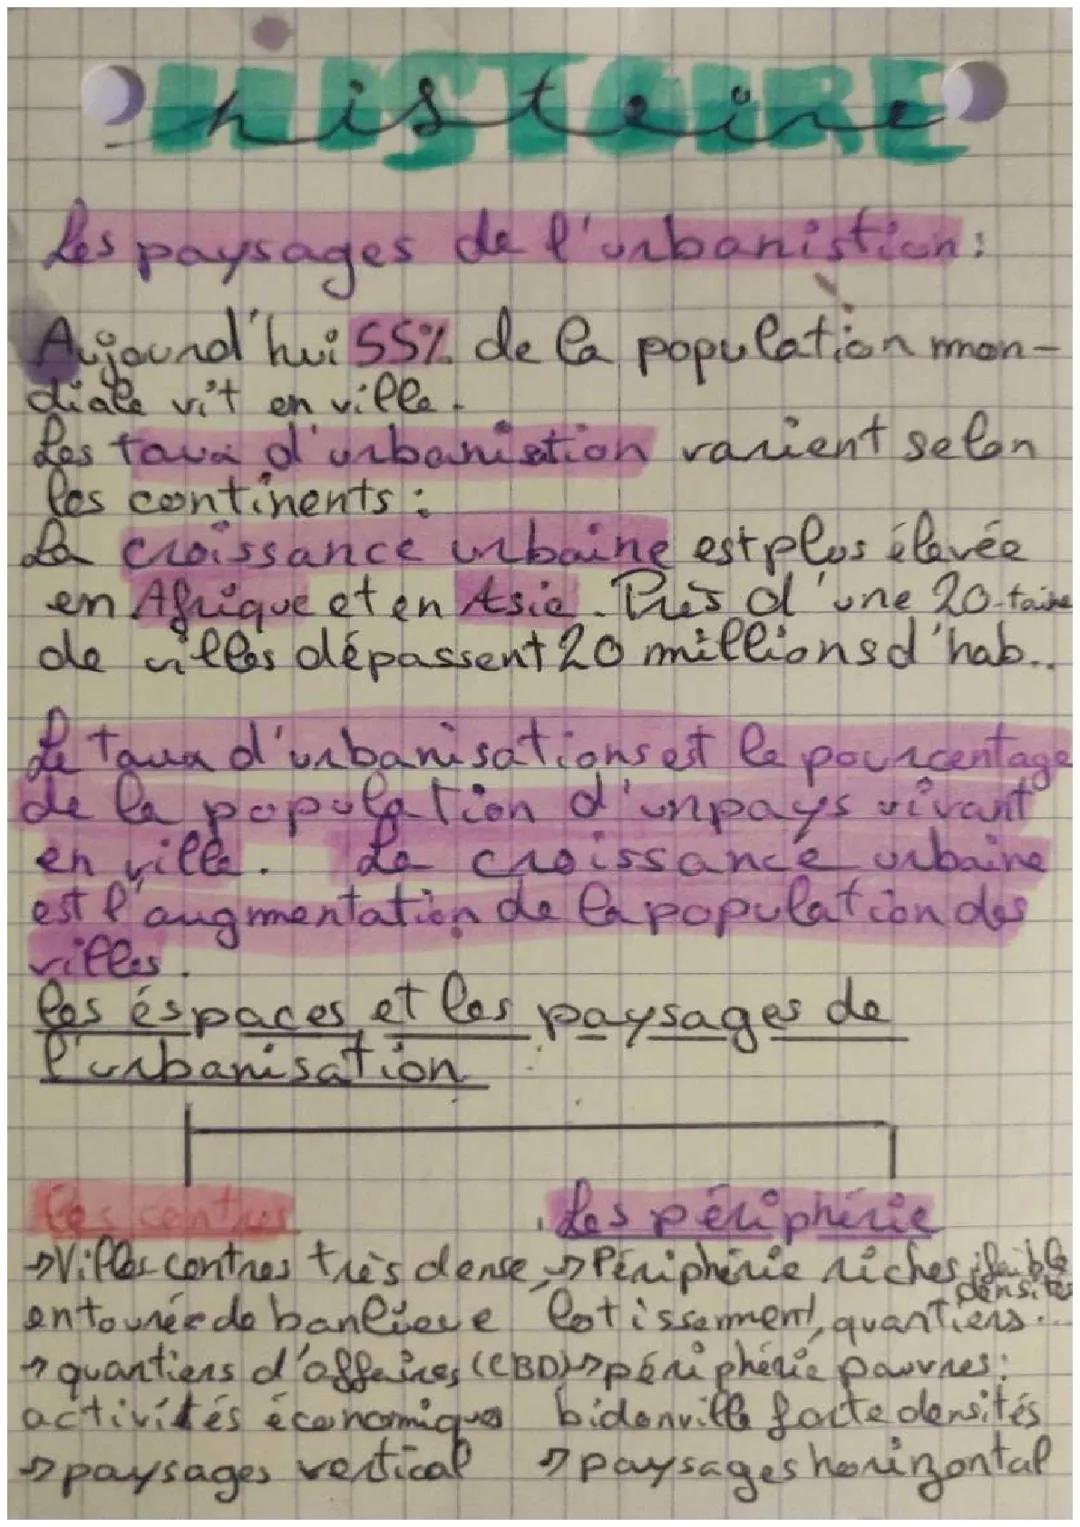 HISTOIRE
histoire
Les paysages de l'urbanistion :
Aujourd'hui 55% de la population mon-
diale vit en ville.
Les taux d'urbanistion varient selon
les continents :
La croissance urbaine est plus élevée
en Afrique et en Asie. Près d'une 20-taine
de villes dépassent 20 millions d'hab..
Le taux d'urbanisations est le pourcentage
de la population d'un pays vivant
en ville. La croissance urbaine
est l'augmentation de la population des
villes.
les éspaces et les paysages de
l'urbanisation
Les centres
→Villes centres très dense
entourée de banlieue
→ quartiers d'affaires (CBD)
activités économiques
→ paysages vertical
Les périphérie
→ Périphérie riches : faible densités
lotissement, quartiers...
→ périphérie pauvres :
bidonville forte densités
→ paysages horizontal